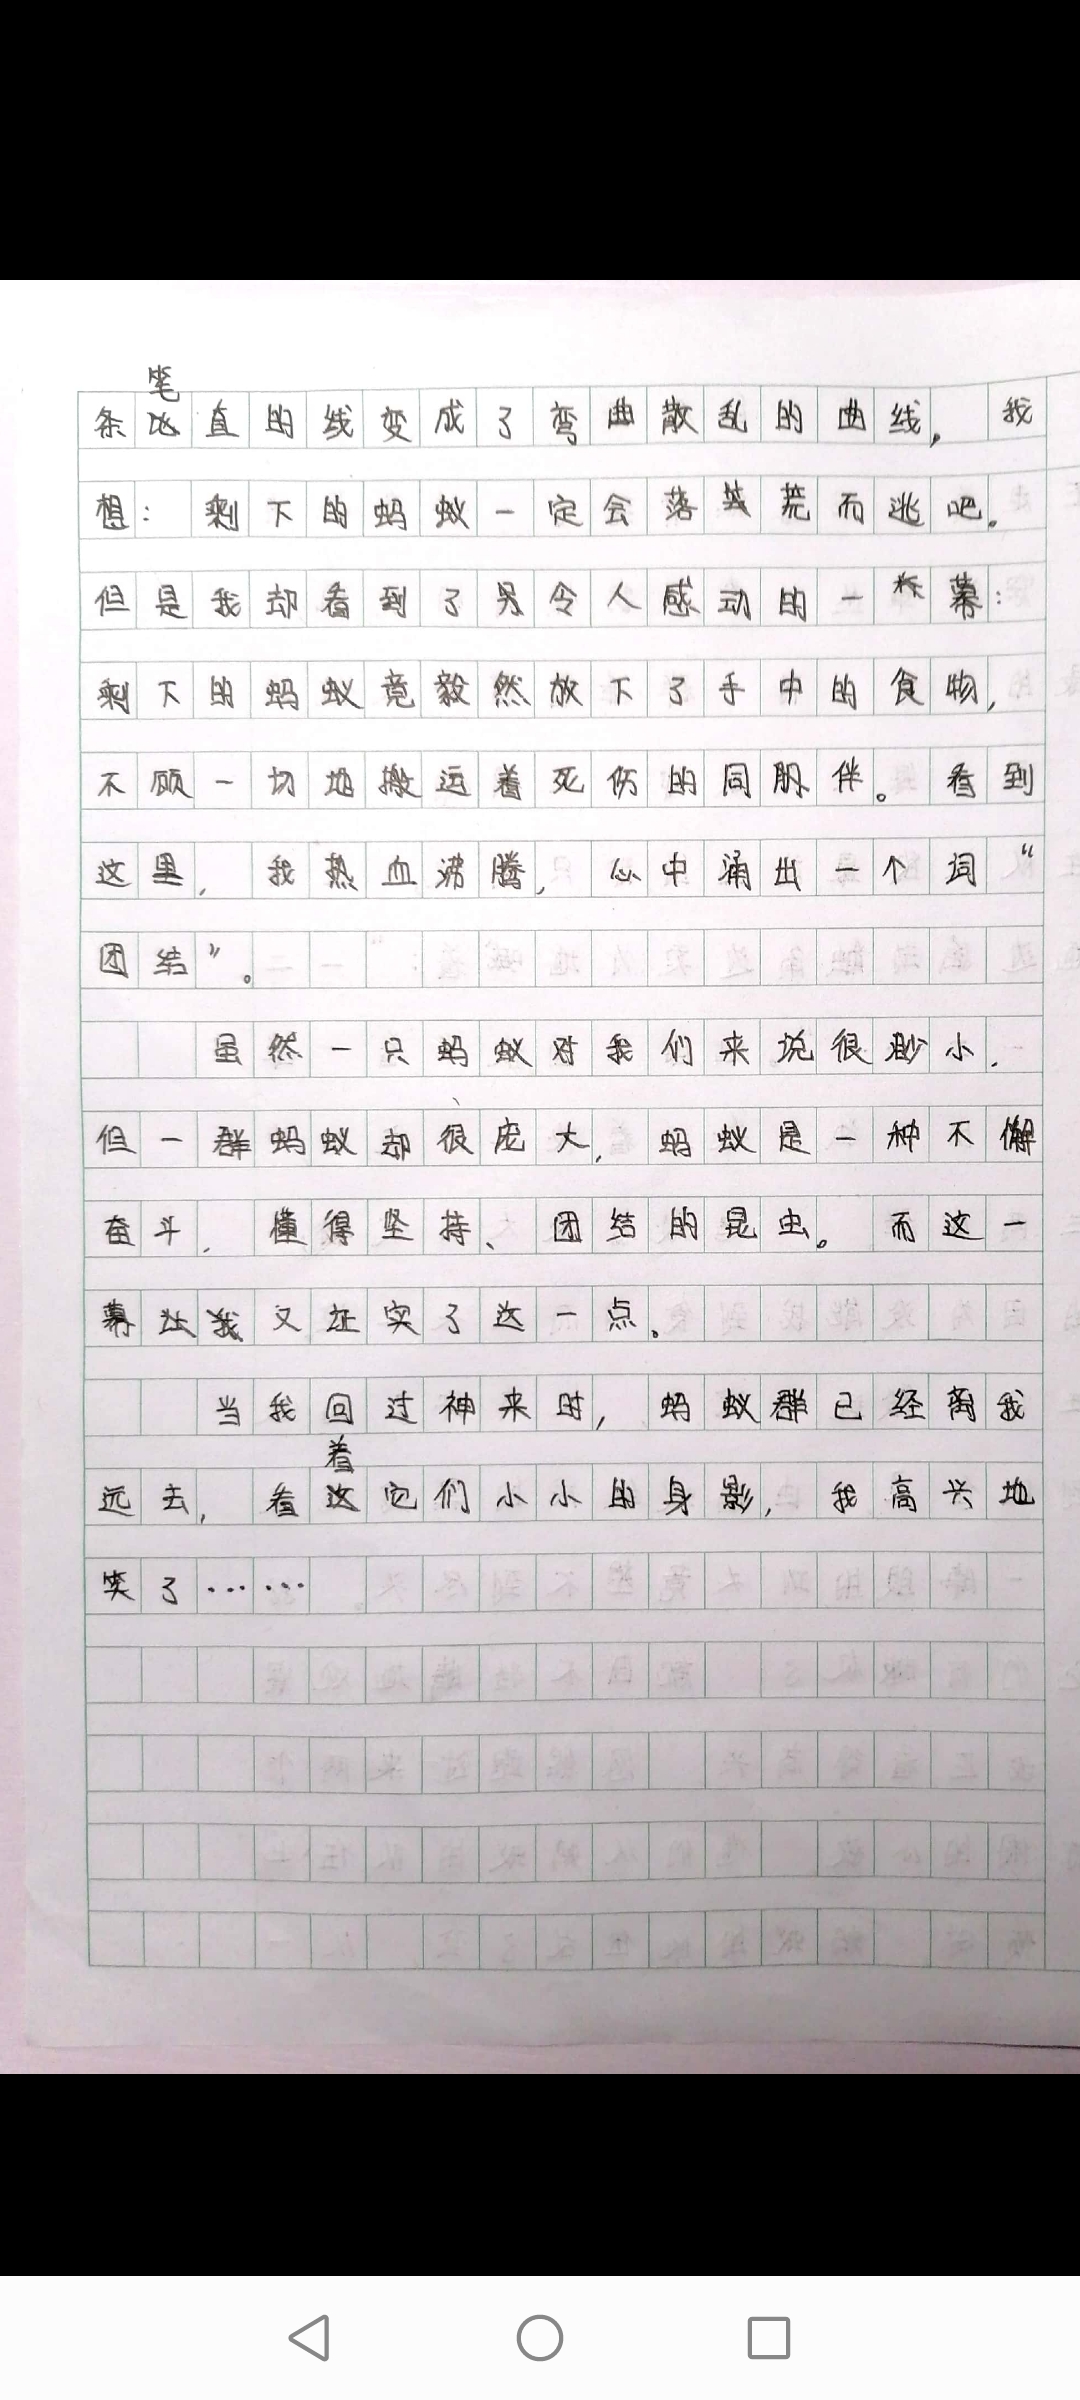 条笔直的线变成了弯曲散乱的曲线，我
想：剩下的蚂蚁一定会落荒而逃吧。
但是我却看到了另令人感动的一幕：
剩下的蚂蚁竟毅然放下了手中的食物，
不顾一切地搬运着死伤的同伴。看到
这里，我热血沸腾，心中涌出一个词“
团结”。
虽然一只蚂蚁对我们来说很渺小，
但一群蚂蚁却很庞大，蚂蚁是一种不懈
奋斗，懂得坚持、团结的昆虫。而这一
幕让我又证实了这一点。
当我回过神来时，蚂蚁群已经离我
远去，看着它们小小的身影，我高兴地
笑了……